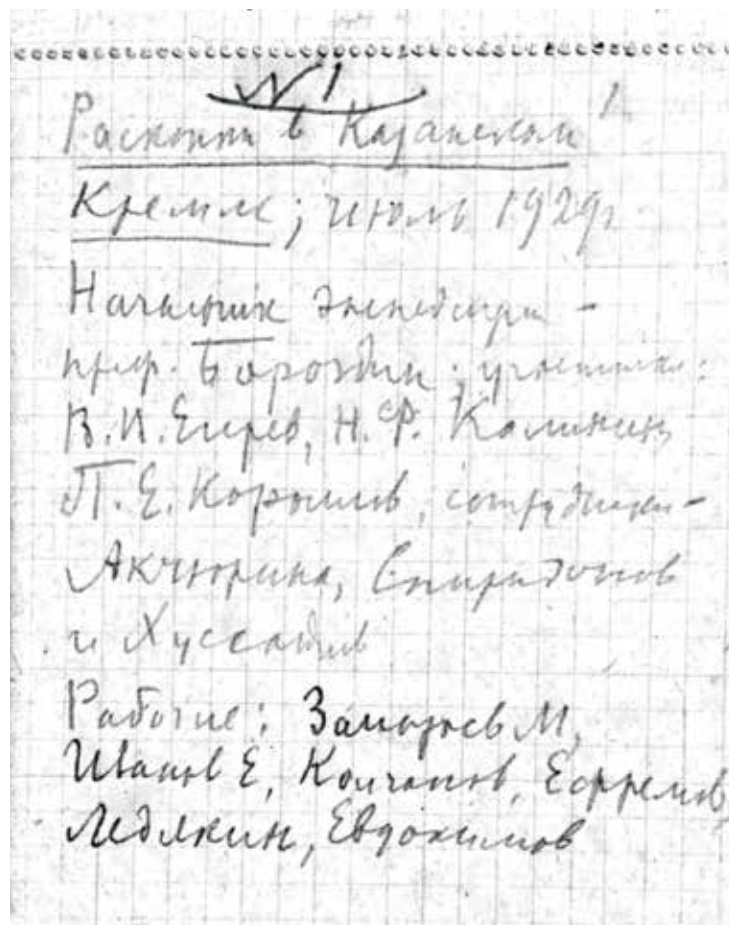 № 1
1.
Раскопки в Казанском
Кремле; июль 1929г.
Начальник экспедиции –
проф. Бороздин; участники:
В.И. Егерев, Н.Ф. Калинин,
П.Е. Корнилов, сотрудники –
Акчюрина, Спиридонов
и
Рабочие: М,
Иванов Е, Колчанов, Ефремов,
Ледякин, Евдокимов